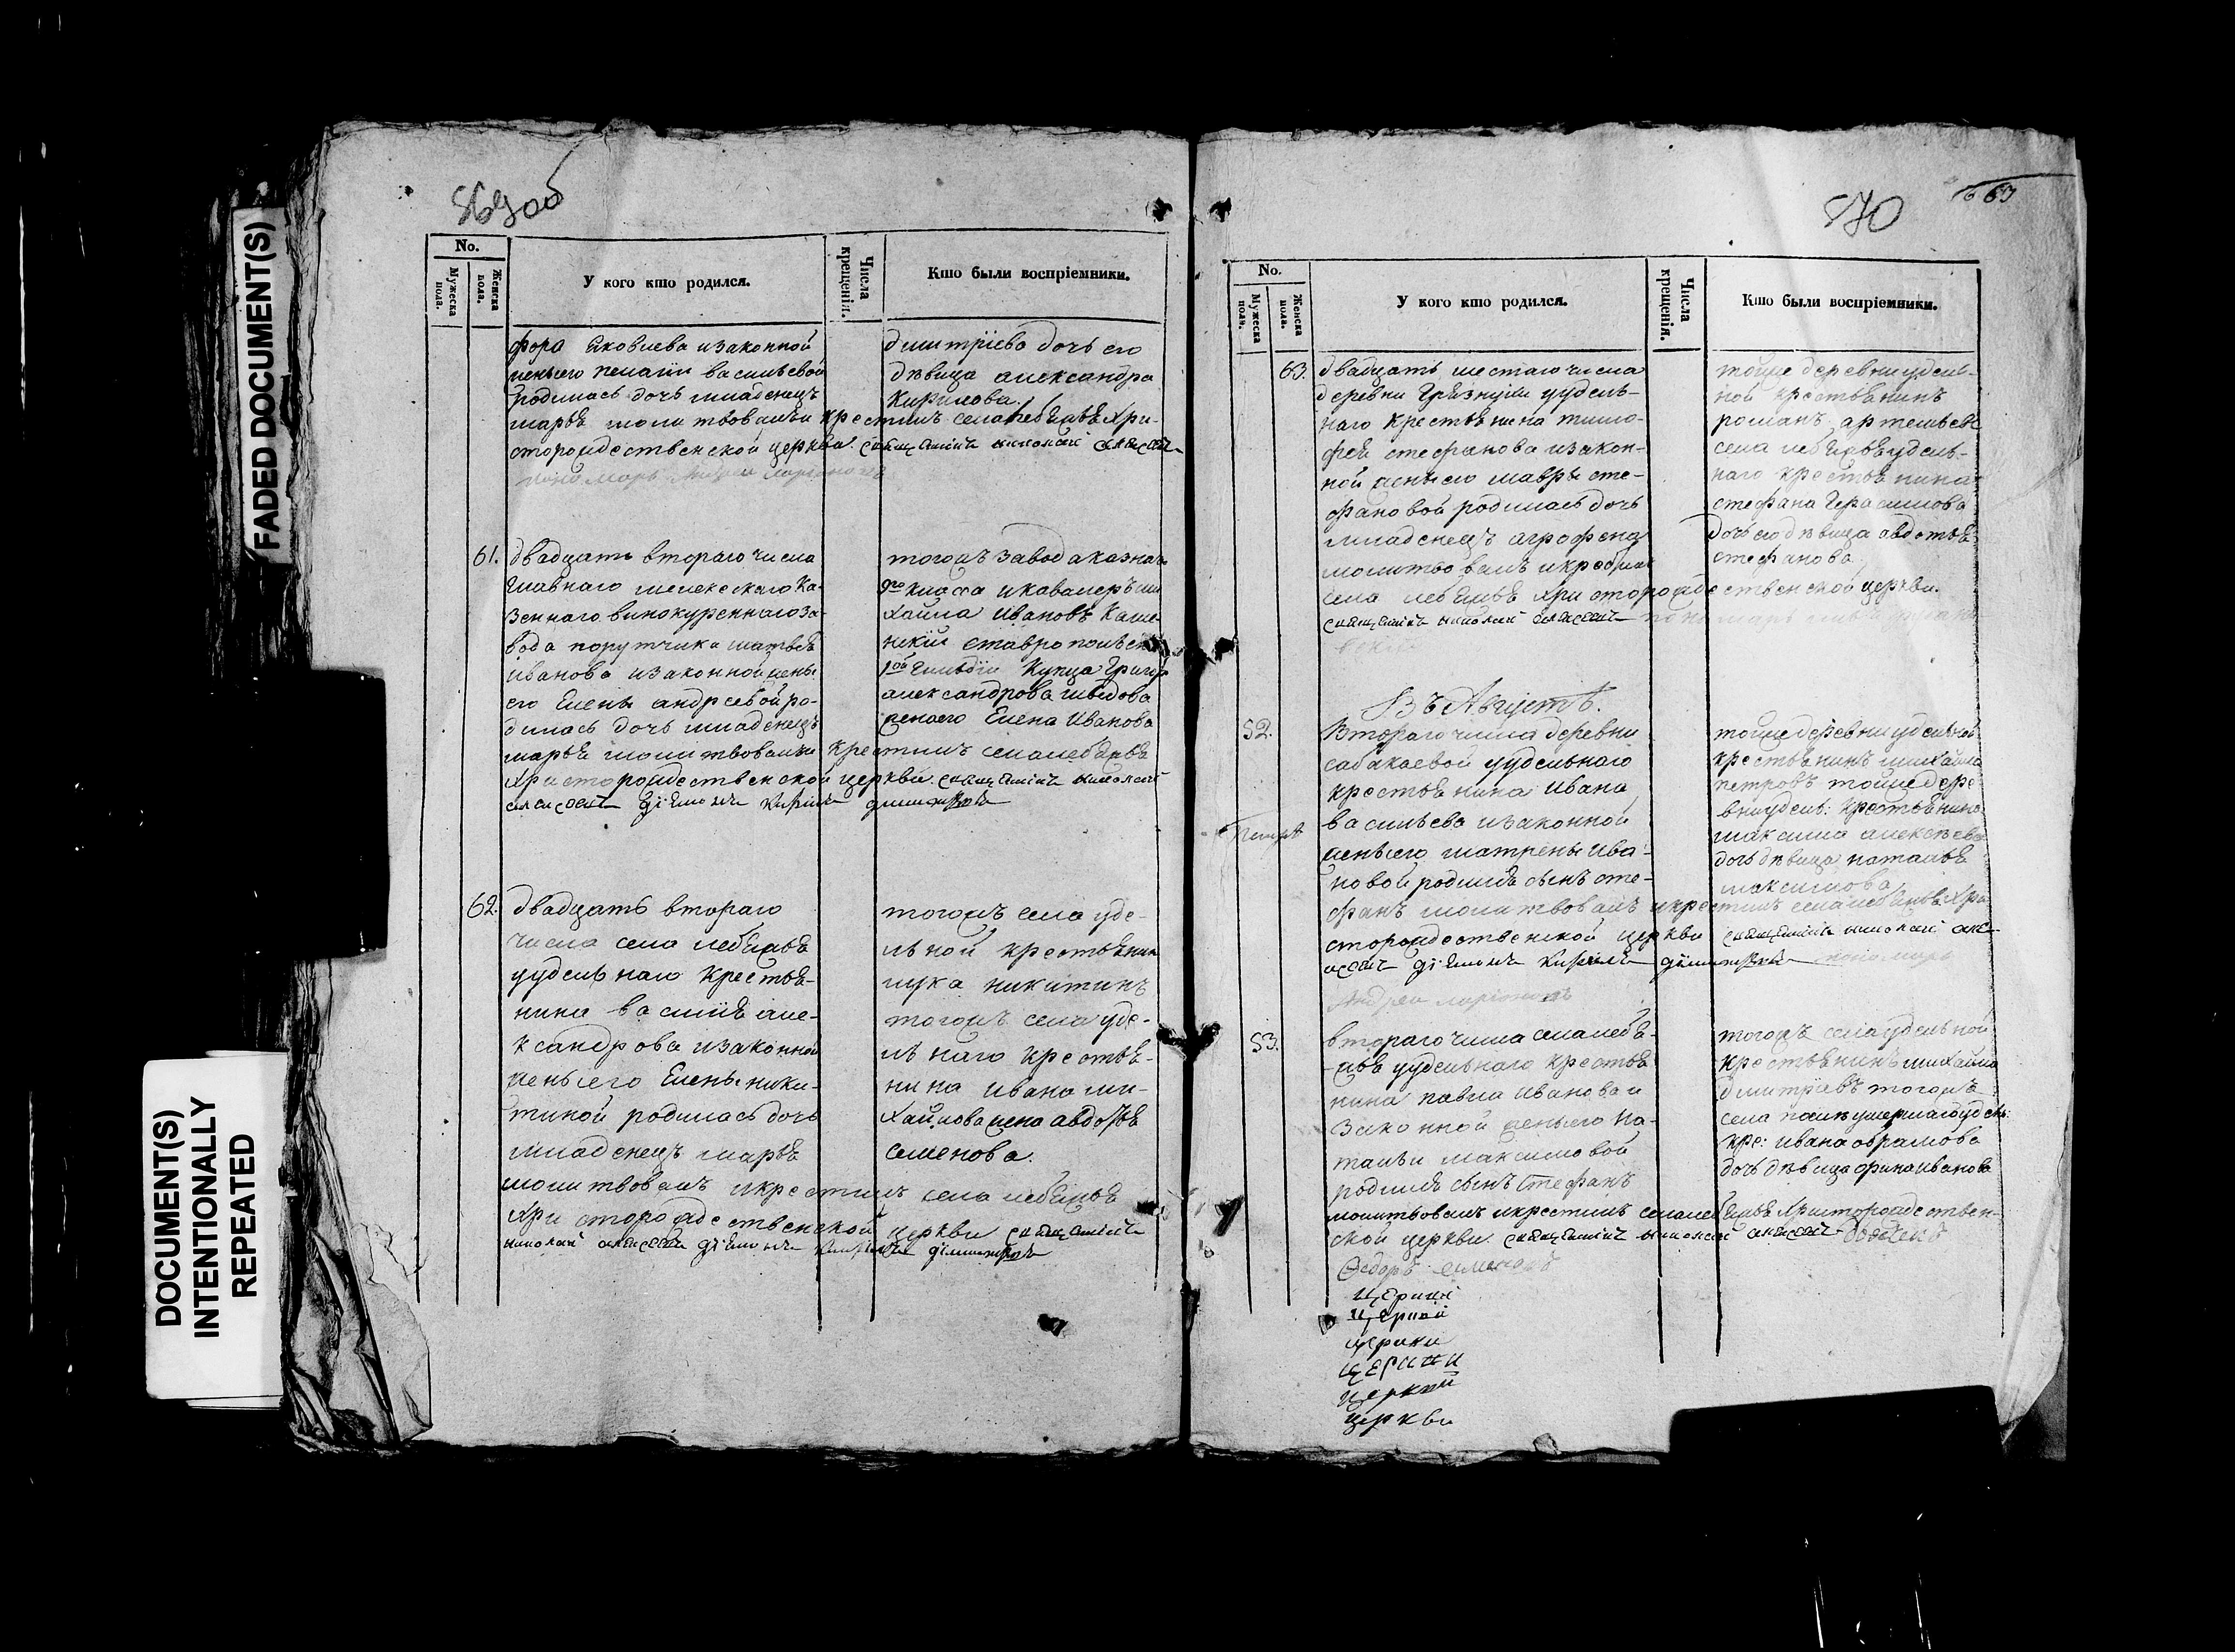 FADED DOCUMENT(S)
DOCUMENT(S)
INTENTIONALLY
REPEATED
869об
No.
Мужеска пола.
Женска пола.
У кого кто родился.
Числа крещенія.
Кто были воспріемники.
фора Яковлева изаконной
жены его пелагіи васильевой
родилась дочь младенецъ
марья молитвовалъ и крестилъ села лебяжья Хри-
сторождественской церкви. священникъ николай алексеевъ
пономарь Андрей
дмитріева дочь его
дѣвица александра
Кирилова.
61. двадцать втораго числа
главнаго мелекескаго Ка-
зеннаго винокуреннаго за-
вода порутчика матвея
иванова изаконной жены
его Елены андреевой ро-
дилась дочь младенецъ
марья молитвовалъ и крестилъ села лебяжья
Христорождественской церкви. священникъ николай
алексеевъ діяконъ Кирилъ димитріевъ
тогожъ завода казначей
9го класса и кавалеръ ми
хайла Ивановъ Каме
нскій ставропольской
1ой Гильдіи Купца Григорья
александрова шведова
жена его Елена Иванова
62. двадцать втораго
числа села лебяжья
уудельнаго Крестья-
нина василья але-
ксандрова изаконной
жены его Елены ники-
тиной родилась дочь
младенецъ марья
молитвовалъ икрестилъ села лебяжья
Христорождественской церкви священникъ
николай алексеевъ діяконъ Кирилъ димитріевъ
тогожъ села уде-
льной крестьянин
лука никитинъ
тогожъ села уде-
льнаго крестья-
нина ивана ми-
хайлова жена авдотья
семенова.
870
63
No.
Мужеска пола.
Женска пола.
У кого кто родился.
Числа крещенія.
Кто были воспріемники.
63. двадцать шестаго числа
деревни Грязнухи уудель-
наго крестьянина тимо-
фея стефанова изакон-
ной жены его мавры сте-
фановой родилась дочь
младенецъ агрофена
молитвовалъ икрестил
села лебяжья христорождественской церкви.
священникъ николай алексеевъ
тойже деревни удель-
ной крестьянинъ
романъ артемьевъ
села лебяжья удель-
наго крестьянина
стефана Герасимова
дочь его дѣвица авдотья
стефанова
Въ Августѣ.
52. Втораго числа деревни
сабакаевой уудельнаго
крестьянина ивана
васильева изаконной
жены его матрены ива-
новой родился сынъ сте-
фанъ молитвовалъ икрестилъ села лебяжья Хри-
сторождественской церкви священникъ николай але-
ксеевъ діяконъ Кирилъ димитріевъ пономарь
Андрей
тойже деревни удельной
крестьянинъ михайла
петровъ тойже дере-
вни удель: крестьянина
максима алексѣева
дочь дѣвица наталья
максимова
53. втораго числа села лебя-
жья уудельнаго крестья
нина павла Иванова и
законной жены его На-
тальи максимовой
родился сынъ Стефанъ
молитвовалъ икрестилъ села лебяжья Христорождествен-
ской церкви. священникъ николай алексеевъ
Федоръ семеновъ
тогожъ села удельной
крестьянинъ михайла
дмитріевъ тогожъ
села умершаго удель:
кре: ивана абрамова
дочь дѣвица ирина иванова
церкви